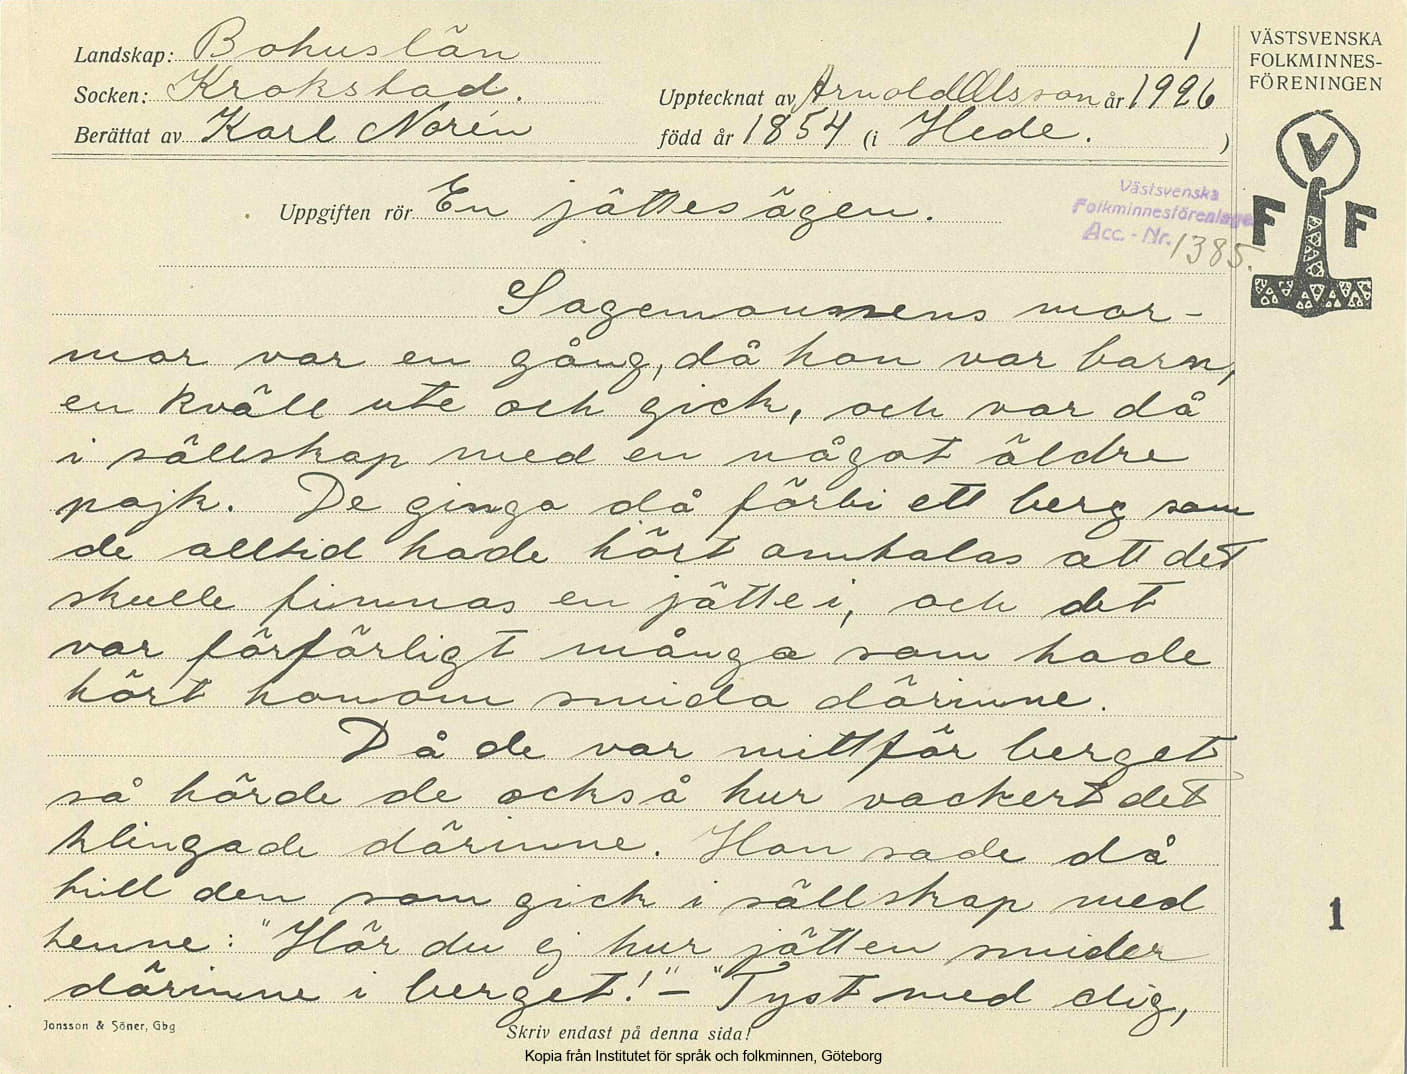 Landskap: Bohuslän
1
Socken: Krokstad.
Upptecknat av Arnold Olsson år 1926
Berättat av Karl Norén
född år 1854 (i Hede. )
VÄSTSVENSKA
FOLKMINNES-
FÖRENINGEN
V
F F
Uppgiften rör En jättesägen.
Västsvenska
Folkminnesföreningen
Acc. - Nr. 1385.
Sagemannens mor-
mor var en gång, då hon var barn,
en kväll ute och gick, och var då
i sällskap med en något äldre
pojk. De ginga då förbi ett berg som
de alltid hade hört omtalas att det
skulle finnas en jätte i, och det
var förfärligt många som hade
hört honom smida därinne.
Då de var mittför berget
så hörde de också hur vackert det
klingade därinne. Hon sade då
till den som gick i sällskap med
henne: "Hör du ej hur jätten smider
därinne i berget!" - "Tyst med dig,
1
Jonsson & Söner, Gbg
Skriv endast på denna sida!
Kopia från Institutet för språk och folkminnen, Göteborg